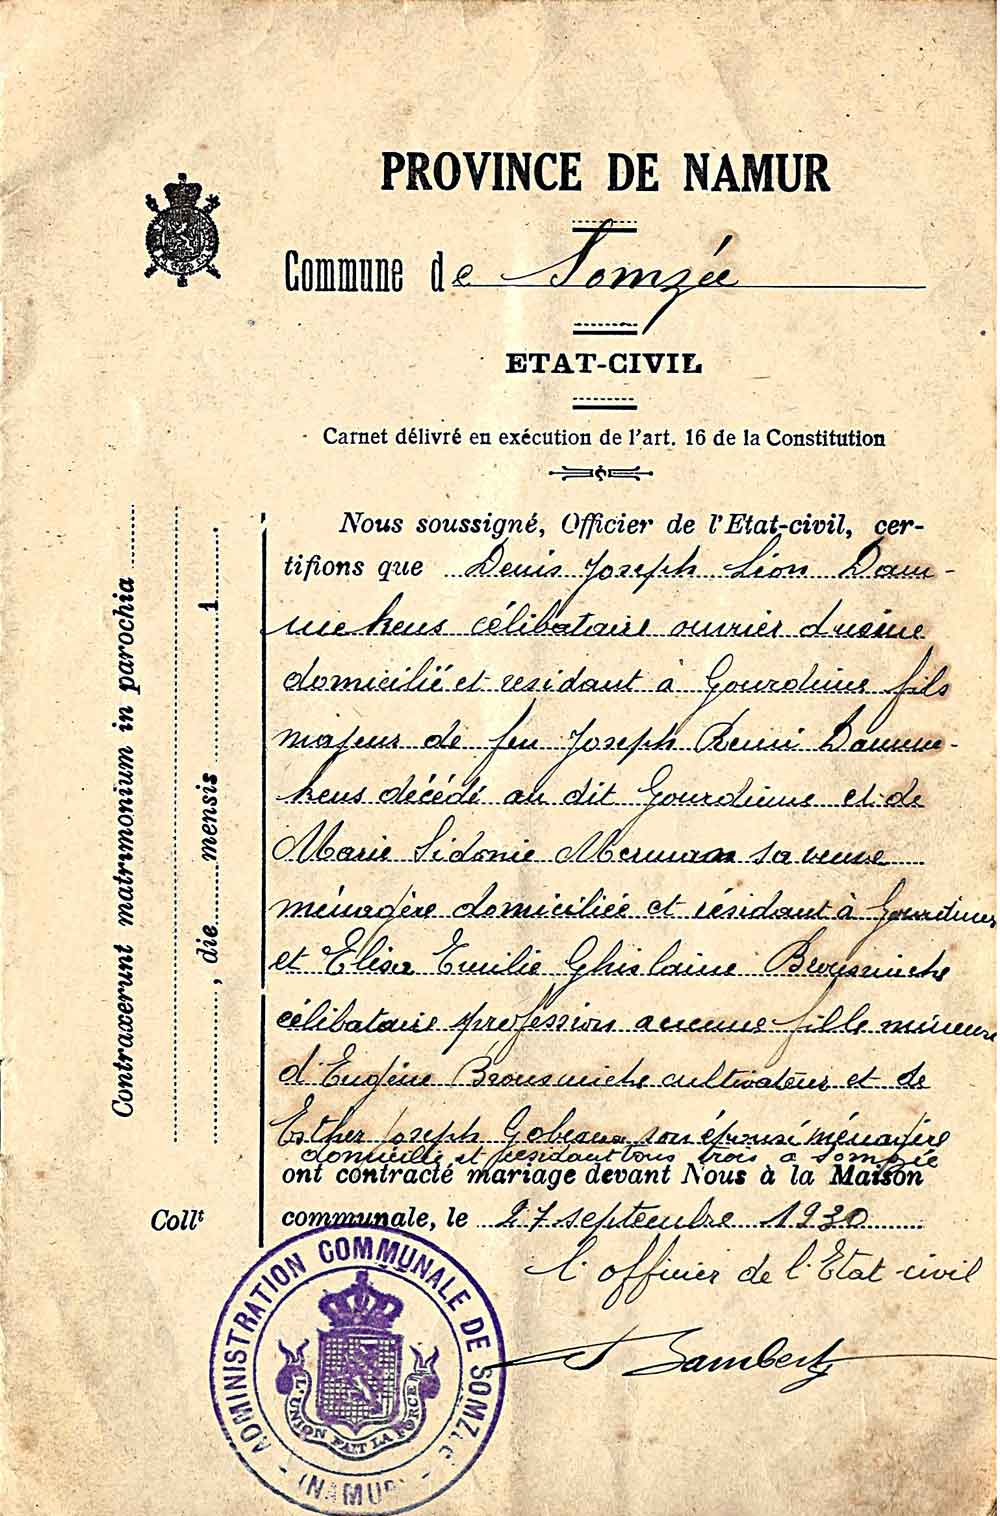 PROVINCE DE NAMUR
Commune de Somzée
ETAT-CIVIL
Carnet délivré en exécution de l'art. 16 de la Constitution
Nous soussigné, Officier de l'Etat-civil, cer-
tifions que Denis Joseph Léon Dam-
mekens célibataire ouvrier d'usine
domicilié et residant à Gourdinne fils
majeur de feu Joseph Remi Damme-
kens décédé au dit Gourdinne et de
Marie Sidonie Merman sa veuve
ménagère domiciliée et résidant à Gourdinne
et Elisa Emilie Ghislaine Brousmiche
célibataire profession aucune fille mineure
d'Eugène Brousmiche cultivateur et de
Esther Joseph son épouse ménagère
domicilié et residant tous trois a Somzée
ont contracté mariage devant Nous à la Maison
communale, le 27 septembre 1930
l'officier de l'Etat-civil
Lambert
Contraxerunt matrimonium in parochia
, die mensis 1
Collt
ADMINISTRATION COMMUNALE DE SOMZÉE
(NAMUR)
L'UNION FAIT LA FORCE